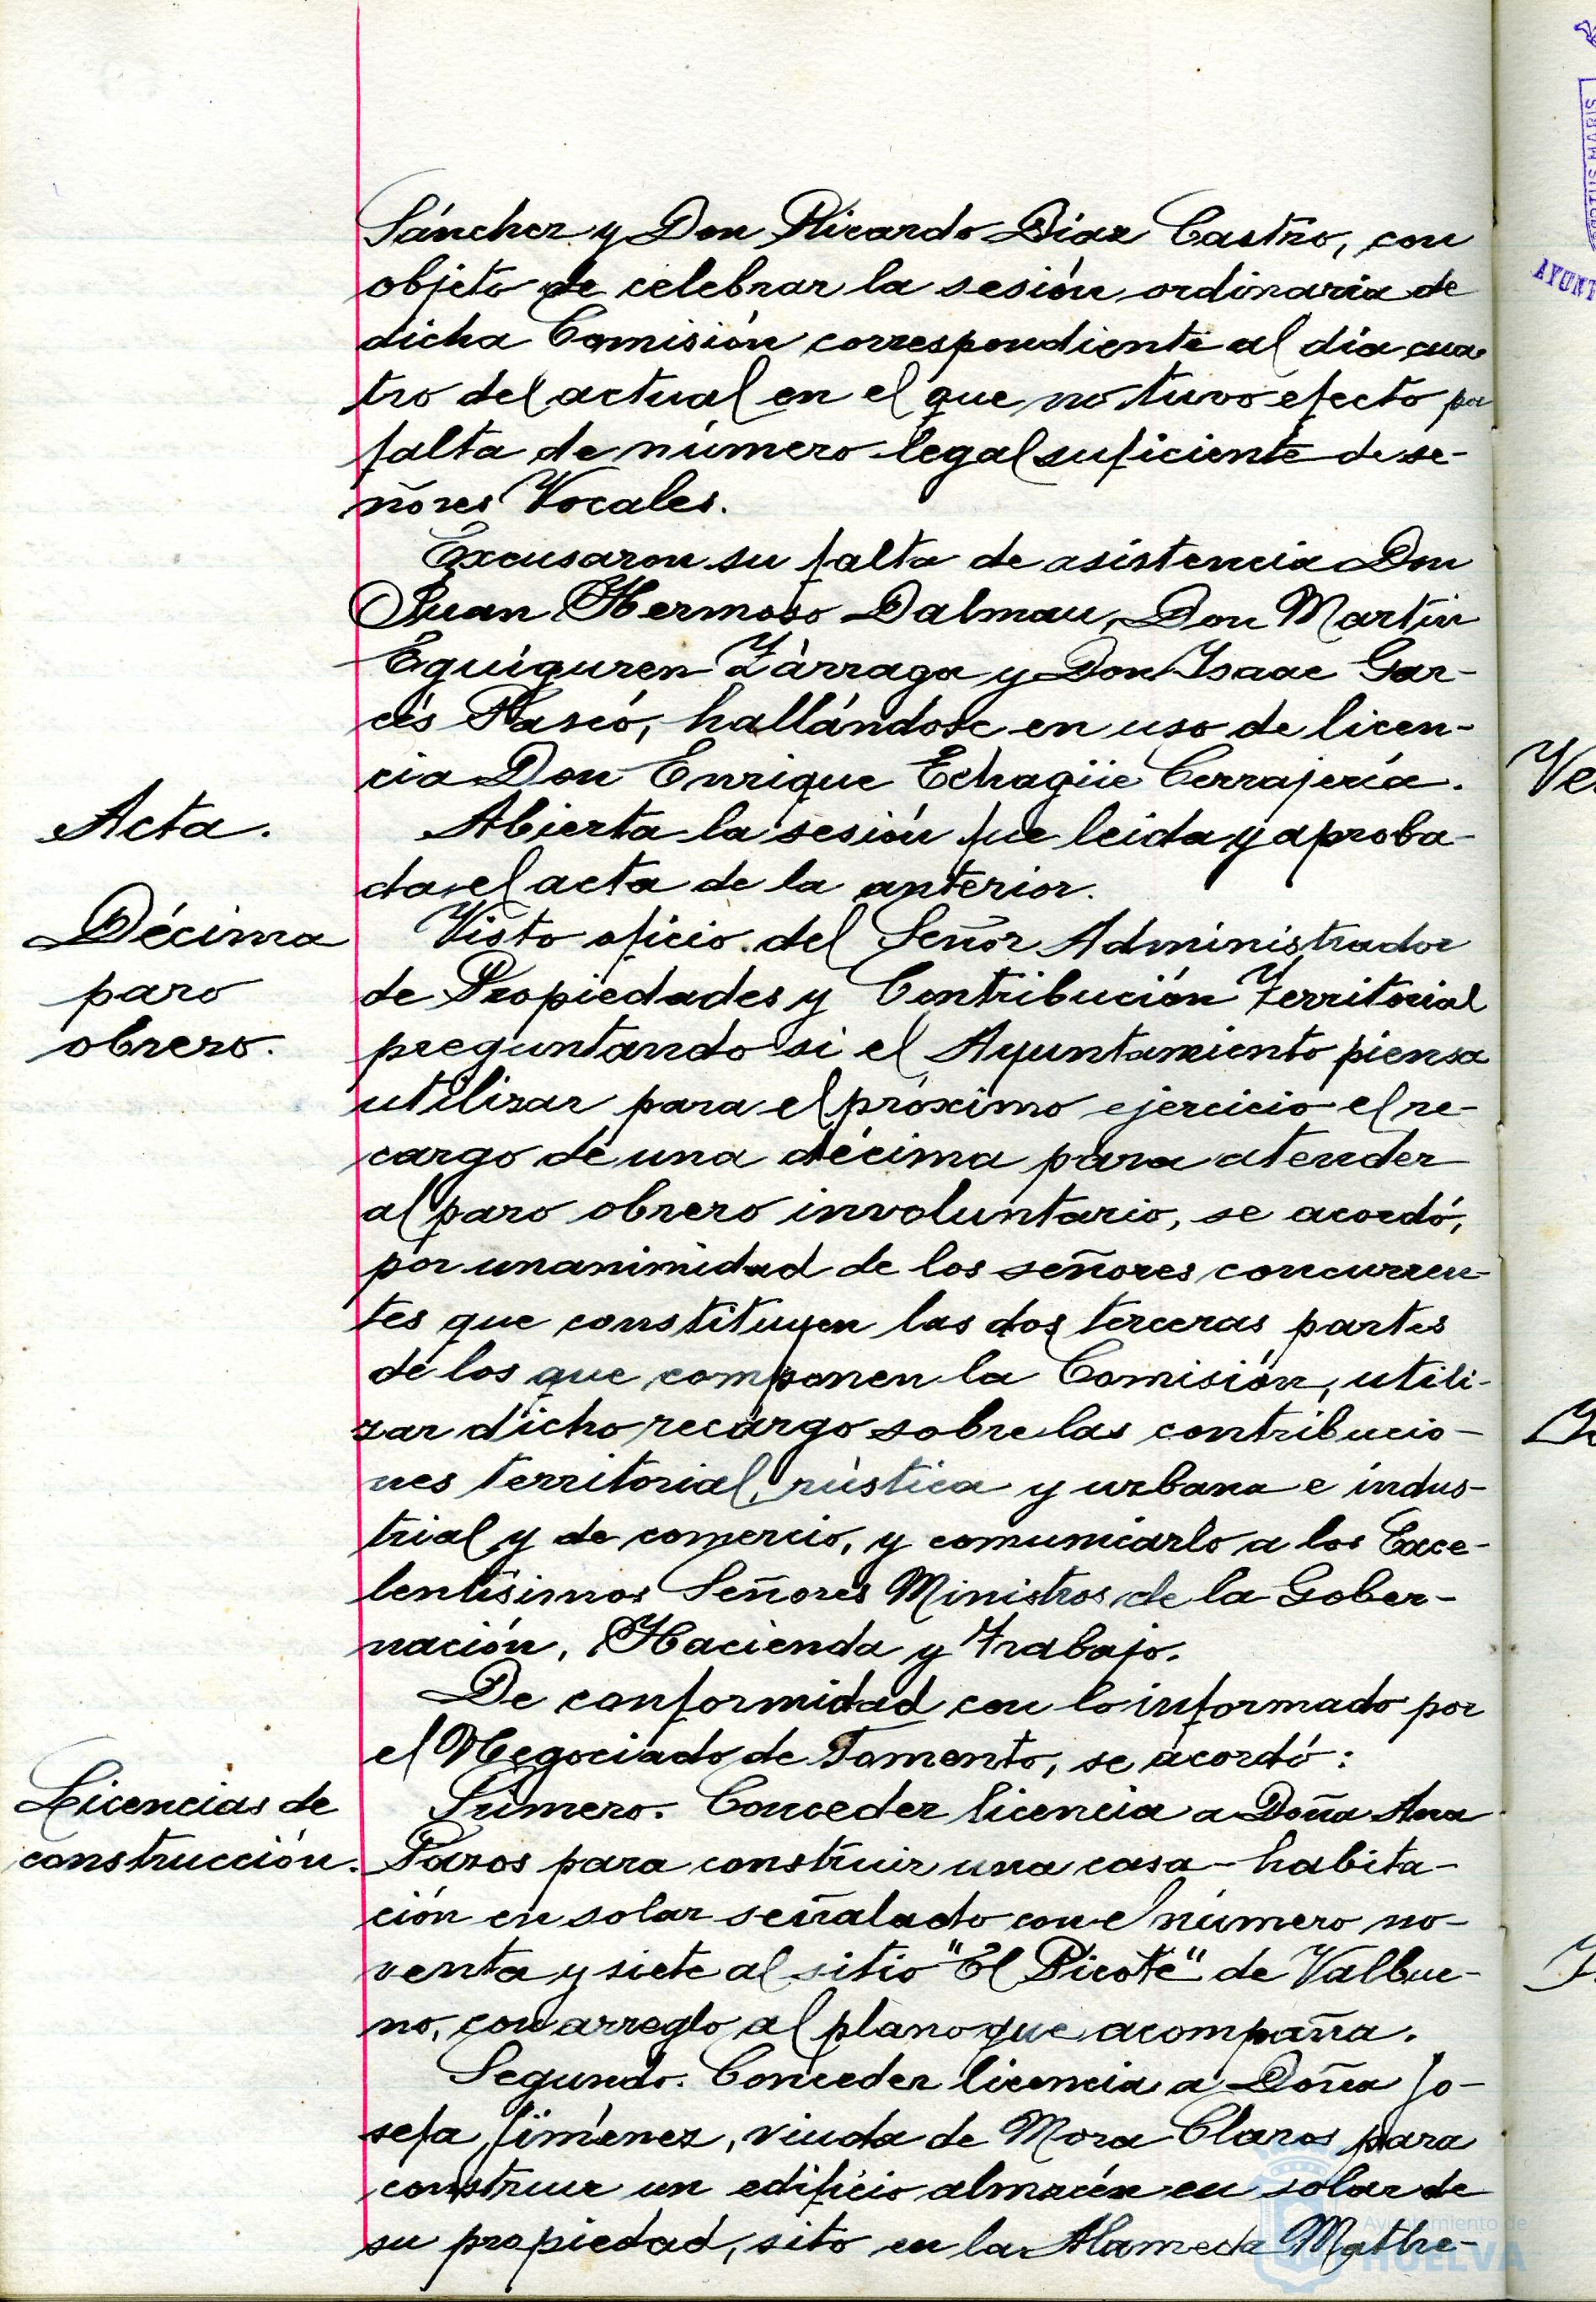 Sánchez y Don Ricardo Díaz Castro, con
objeto de celebrar la sesión ordinaria de
dicha Comisión correspondiente al día cua-
tro del actual en el que no tuvo efecto por
falta de número legal suficiente de se-
ñores Vocales.
Excusaron su falta de asistencia Don
Juan Hermoso Dalmau, Don Martín
Eguiguren Zárraga y Don Isaac Gar-
cés hallándose en uso de licen-
cia Don Enrique Echagüe Cerrajería.
Acta.
Abierta la sesión fue leida y aproba-
da el acta de la anterior.
Décima
paro
obrero.
Visto oficio del Señor Administrador
de Propiedades y Contribución Territorial
preguntando si el Ayuntamiento piensa
utilizar para el próximo ejercicio el re-
cargo de una décima para atender
al paro obrero involuntario, se acordó,
por unanimidad de los señores concurren-
tes que constituyen las dos terceras partes
de los que componen la Comisión, utili-
zar dicho recargo sobre las contribucio-
nes territorial, rústica y urbana e indus-
trial y de comercio, y comunicarlo a los Exce-
lentísimos Señores Ministros de la Gober-
nación, Hacienda y Trabajo.
De conformidad con lo informado por
el Negociado de Fomento, se acordó:
Licencias de
construcción.
Primero. Conceder licencia a Doña Ana
Pazos para construir una casa-habita-
ción en solar señalado con el número no-
venta y siete al sitio "El Picote" de Valbue-
no, con arreglo al plano que acompaña.
Segundo. Conceder licencia a Doña Jo-
sefa Jiménez, viuda de Mora Claros para
construir un edificio almacén en solar de
su propiedad, sito en la Alameda Mathe-
Ayuntamiento de
HUELVA